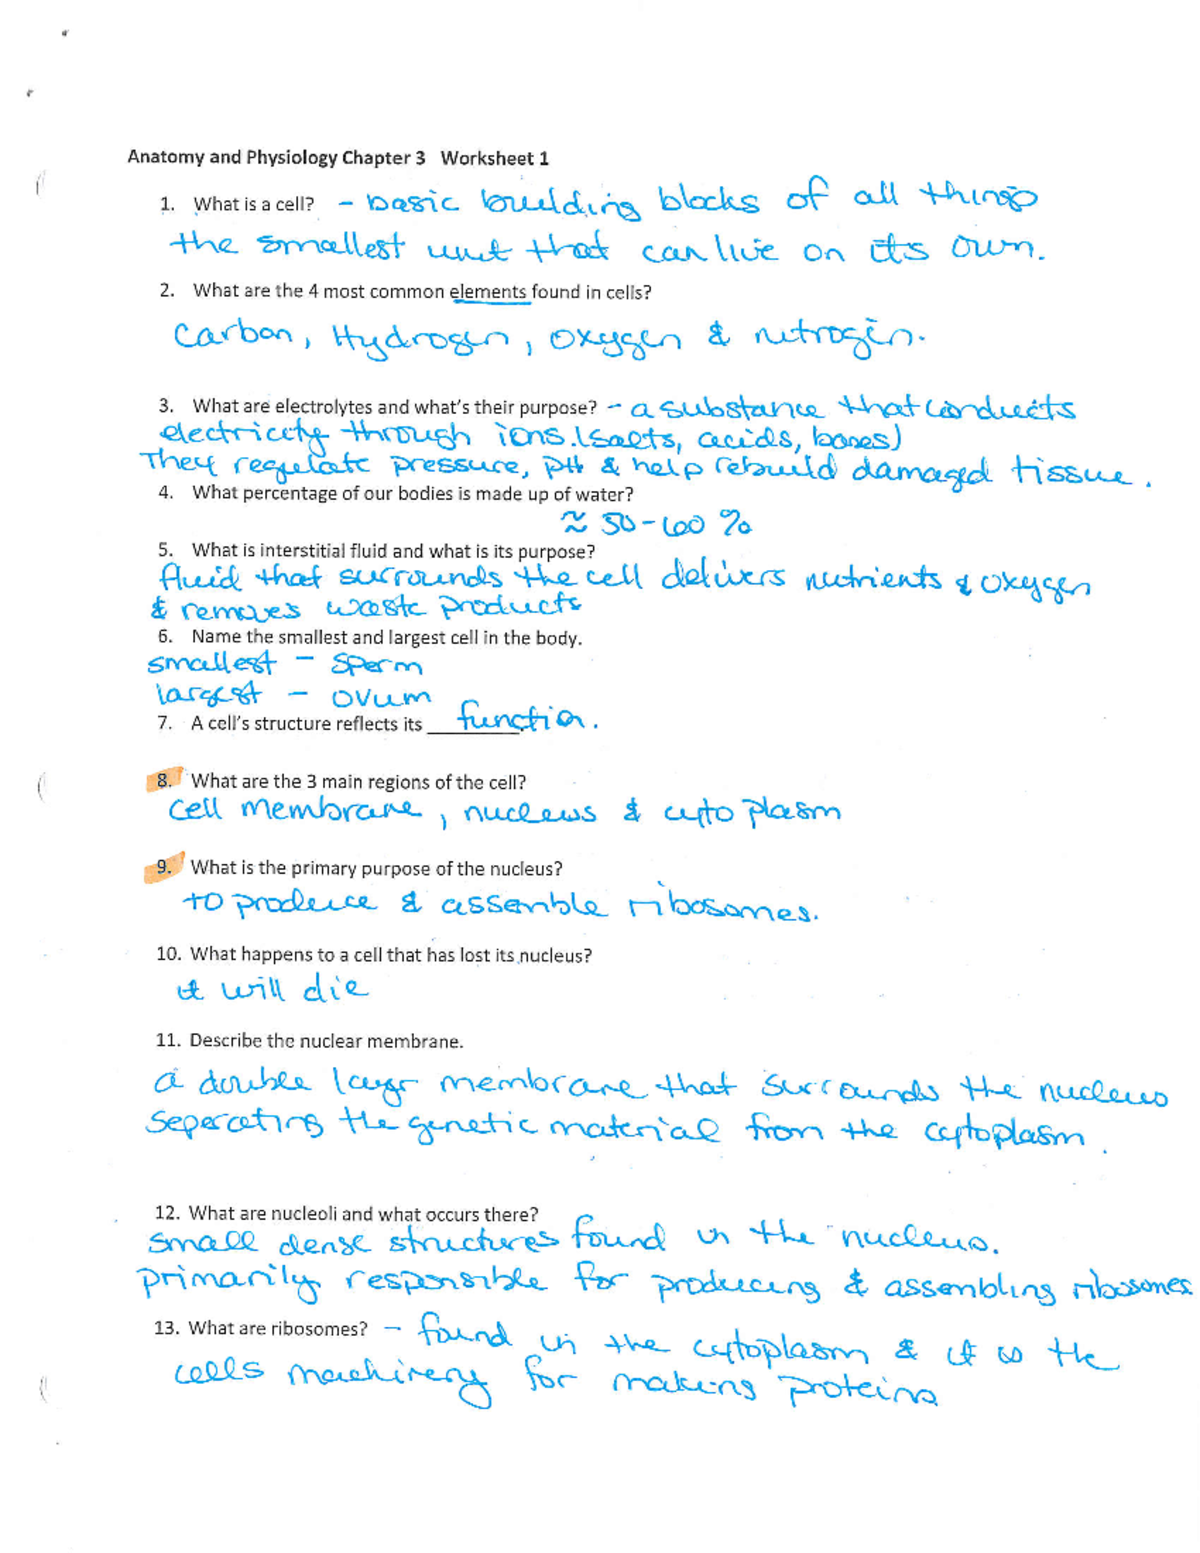 Anatomy and Physiology Chapter 3 Worksheet 1
1. What is a cell? - basic building blocks of all things
the smallest unit that can live on its own.
2. What are the 4 most common elements found in cells?
Carbon, Hydrogen, oxygen & nitrogen.
3. What are electrolytes and what's their purpose? - a substance that conducts
electricity through ions. (salts, acids, bases)
They regulate pressure, pH & help rebuild damaged tissue.
4. What percentage of our bodies is made up of water?
≈ 50-60 %
5. What is interstitial fluid and what is its purpose?
fluid that surrounds the cell delivers nutrients & oxygen
& removes waste products
6. Name the smallest and largest cell in the body.
smallest - sperm
largest - ovum
7. A cell's structure reflects its function.
8. What are the 3 main regions of the cell?
cell membrane, nucleus & cytoplasm
9. What is the primary purpose of the nucleus?
to produce & assemble ribosomes.
10. What happens to a cell that has lost its nucleus?
it will die
11. Describe the nuclear membrane.
a double layer membrane that surrounds the nucleus
seperating the genetic material from the cytoplasm.
12. What are nucleoli and what occurs there?
small dense structures found in the nucleus.
primarily responsible for producing & assembling ribosomes
13. What are ribosomes? - found in the cytoplasm & it is the
cells machinery for making proteins